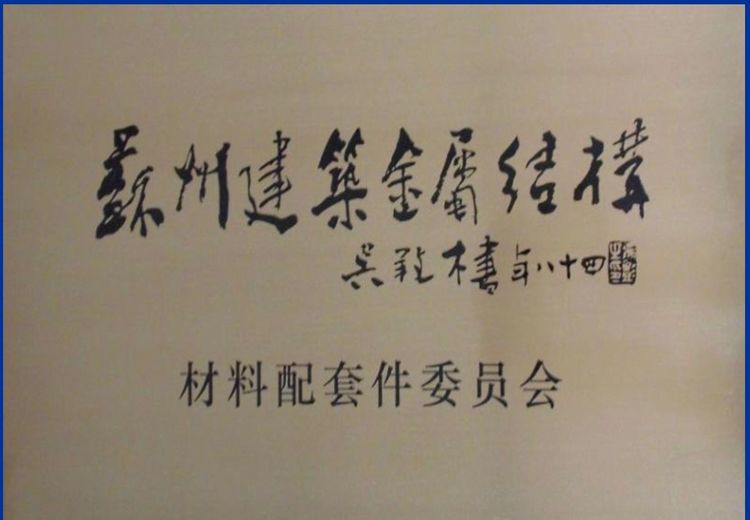 蘇州建築金屬結構
吳羖木書年八十四
材料配套件委员会